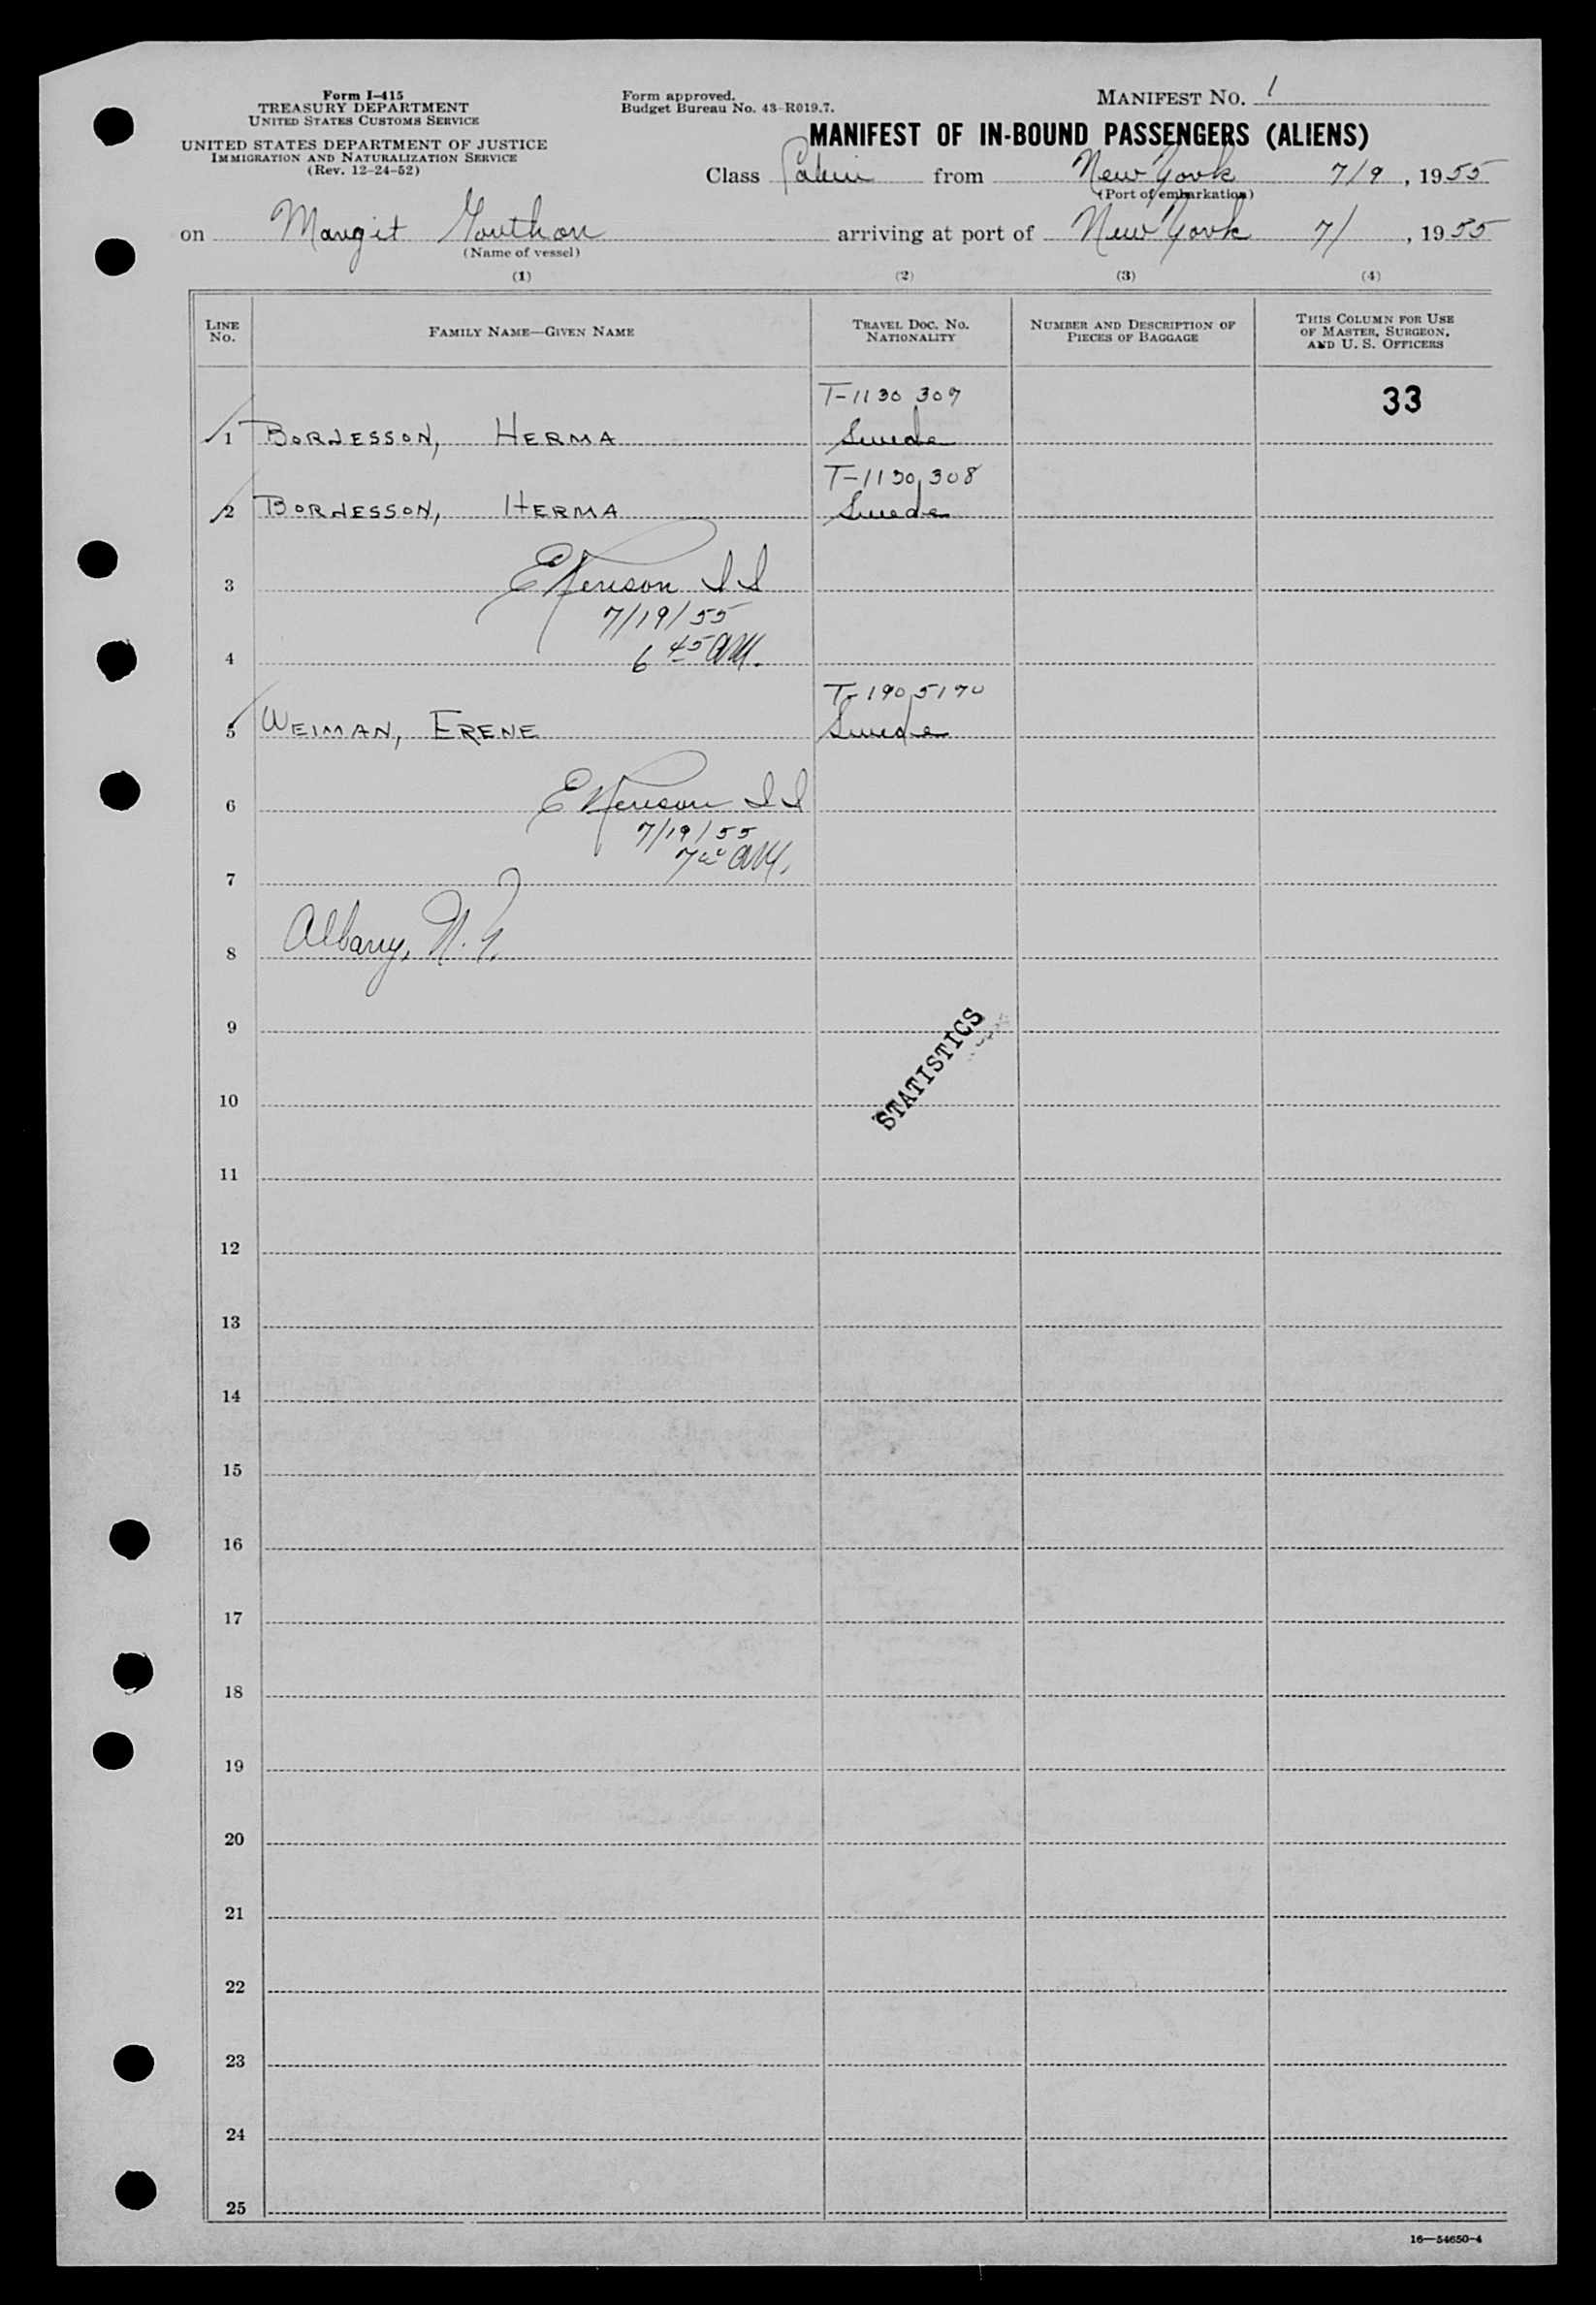 Form I-415
TREASURY DEPARTMENT
UNITED STATES CUSTOMS SERVICE
UNITED STATES DEPARTMENT OF JUSTICE
IMMIGRATION AND NATURALIZATION SERVICE
(Rev. 12-24-52)
Form approved.
Budget Bureau No. 43-R019.7.
MANIFEST NO. 1
MANIFEST OF IN-BOUND PASSENGERS (ALIENS)
Class Cabin from New York 7/9, 1955
(Port of embarkation)
on Margit Gorthon arriving at port of New York 7/ , 1955
(Name of vessel)
(1) (2) (3) (4)
LINE NO. FAMILY NAME—GIVEN NAME TRAVEL DOC. NO. NATIONALITY NUMBER AND DESCRIPTION OF PIECES OF BAGGAGE THIS COLUMN FOR USE OF MASTER, SURGEON, AND U. S. OFFICERS
T-1130 309 33
1 BORJESSON, HERMA Swede
T-1130,308
2 BORJESSON, HERMA Swede
3 II
7/19/55
4 6 45 AM.
T-1905170
5 WEIMAN, ERENE Swede
6 II
7/19/55
7 7 00 AM.
8 Albany, N.Y.
9
STATISTICS
10
11
12
13
14
15
16
17
18
19
20
21
22
23
24
25
16—54650-4